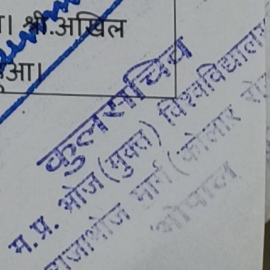 । श्री.अखिल
ुआ।
कुलसचिव
म.प्र. भोज (मुक्त) विश्वविद्यालय
राजाभोज मार्ग (कोलार रो
भोपाल